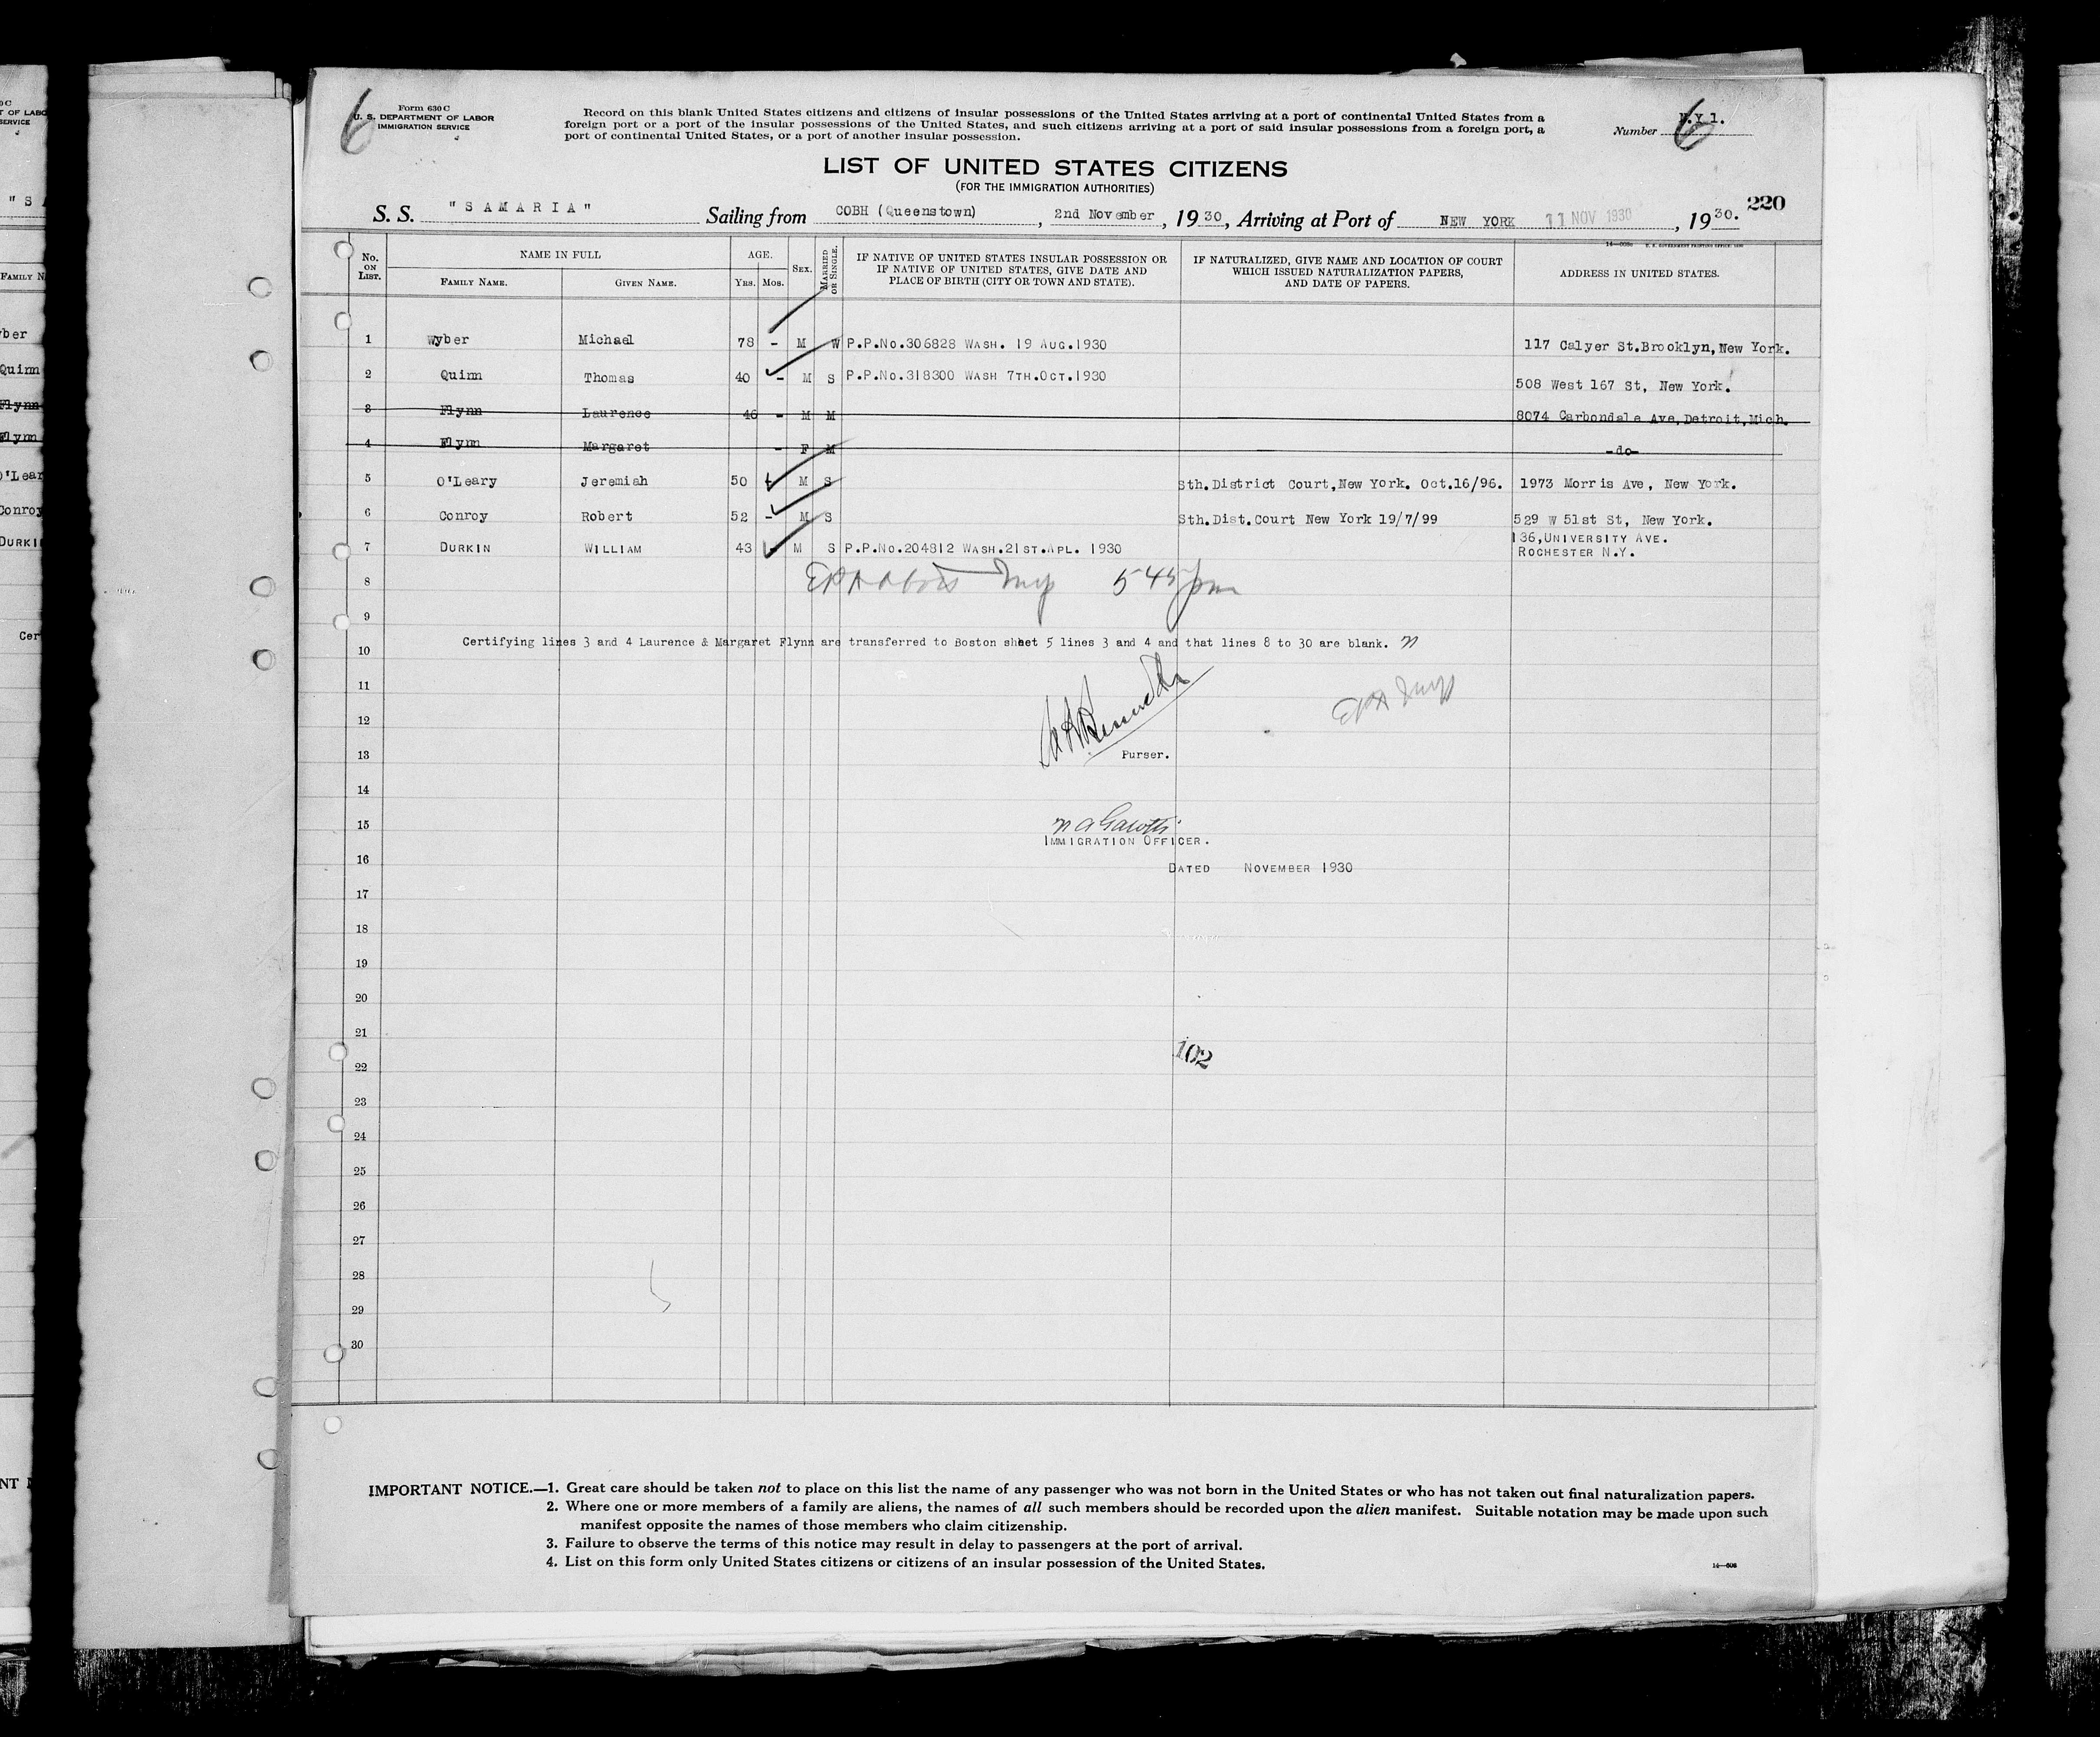 6
Form 630 C
U. S. DEPARTMENT OF LABOR
IMMIGRATION SERVICE
Record on this blank United States citizens and citizens of insular possessions of the United States arriving at a port of continental United States from a
foreign port or a port of the insular possessions of the United States, and such citizens arriving at a port of said insular possessions from a foreign port, a
port of continental United States, or a port of another insular possession.
Number N.Y 1. 6
LIST OF UNITED STATES CITIZENS
(FOR THE IMMIGRATION AUTHORITIES)
220
S. S. "SAMARIA" Sailing from COBH (Queenstown), 2nd November, 1930, Arriving at Port of NEW YORK 11 NOV 1930, 1930.
No. ON LIST. NAME IN FULL FAMILY NAME. GIVEN NAME. AGE. YRS. MOS. SEX. MARRIED OR SINGLE. IF NATIVE OF UNITED STATES INSULAR POSSESSION OR IF NATIVE OF UNITED STATES, GIVE DATE AND PLACE OF BIRTH (CITY OR TOWN AND STATE). IF NATURALIZED, GIVE NAME AND LOCATION OF COURT WHICH ISSUED NATURALIZATION PAPERS, AND DATE OF PAPERS. ADDRESS IN UNITED STATES.
1 Wyber Michael 78 - M W P.P.No.306828 WASH. 19 AUG.1930 117 Calyer St.Brooklyn,New York.
2 Quinn Thomas 40 - M S P.P.No.318300 WASH 7TH.OCT.1930 508 West 167 St, New York.
3 Flynn Laurence 46 - M M 8074 Carbondale Ave,Detroit,Mich.
4 Flynn Margaret - F M -do-
5 O'Leary Jeremiah 50 - M S Sth.District Court,New York. Oct.16/96. 1973 Morris Ave, New York.
6 Conroy Robert 52 - M S Sth.Dist.Court New York 19/7/99 529 W 51st St, New York.
7 DURKIN WILLIAM 43 - M S P.P.No.204812 WASH.21ST.APL. 1930 136,UNIVERSITY AVE.
ROCHESTER N.Y.
8 545 pm
9
Certifying lines 3 and 4 Laurence & Margaret Flynn are transferred to Boston sheet 5 lines 3 and 4 and that lines 8 to 30 are blank.
10
11
12
13 Purser.
14
15
IMMIGRATION OFFICER.
16 DATED NOVEMBER 1930
17
18
19
20
21
102
22
23
24
25
26
27
28
29
30
IMPORTANT NOTICE.—1. Great care should be taken not to place on this list the name of any passenger who was not born in the United States or who has not taken out final naturalization papers.
2. Where one or more members of a family are aliens, the names of all such members should be recorded upon the alien manifest. Suitable notation may be made upon such
manifest opposite the names of those members who claim citizenship.
3. Failure to observe the terms of this notice may result in delay to passengers at the port of arrival.
4. List on this form only United States citizens or citizens of an insular possession of the United States.